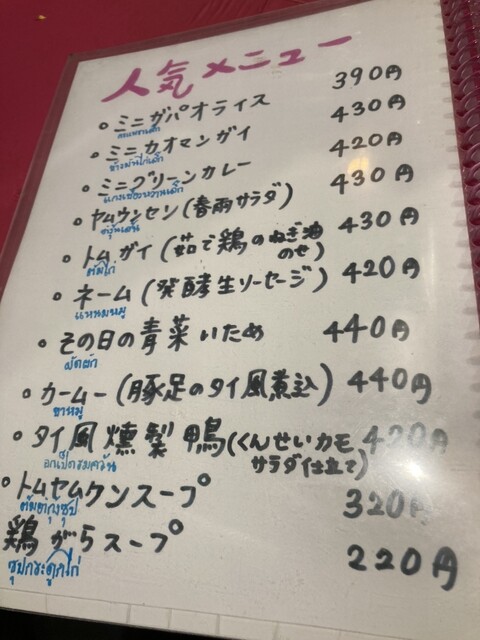 人気メニュー
○ ミニガパオライス 390円
○ ミニカオマンガイ 430円
ข้าวมันไก่เล็ก
○ ミニグリーンカレー 420円
แกงเขียวหวานเล็ก
○ ヤムウンセン(春雨サラダ) 430円
○ トムガイ(茹で鶏のねぎ油のせ) 430円
ต้มไก่
○ ネーム(発酵生ソーセージ) 420円
แหนมหมู
○ その日の青菜いため 440円
ผัดผัก
○ カームー(豚足のタイ風煮込) 440円
ขาหมู
○ タイ風燻製鴨(くんせいカモ 420円
サラダ仕立て)
อกเป็ดรมควัน
○ トムヤムクンスープ 320円
ต้มยำกุ้งซุป
鶏がらスープ 220円
ซุปกระดูกไก่